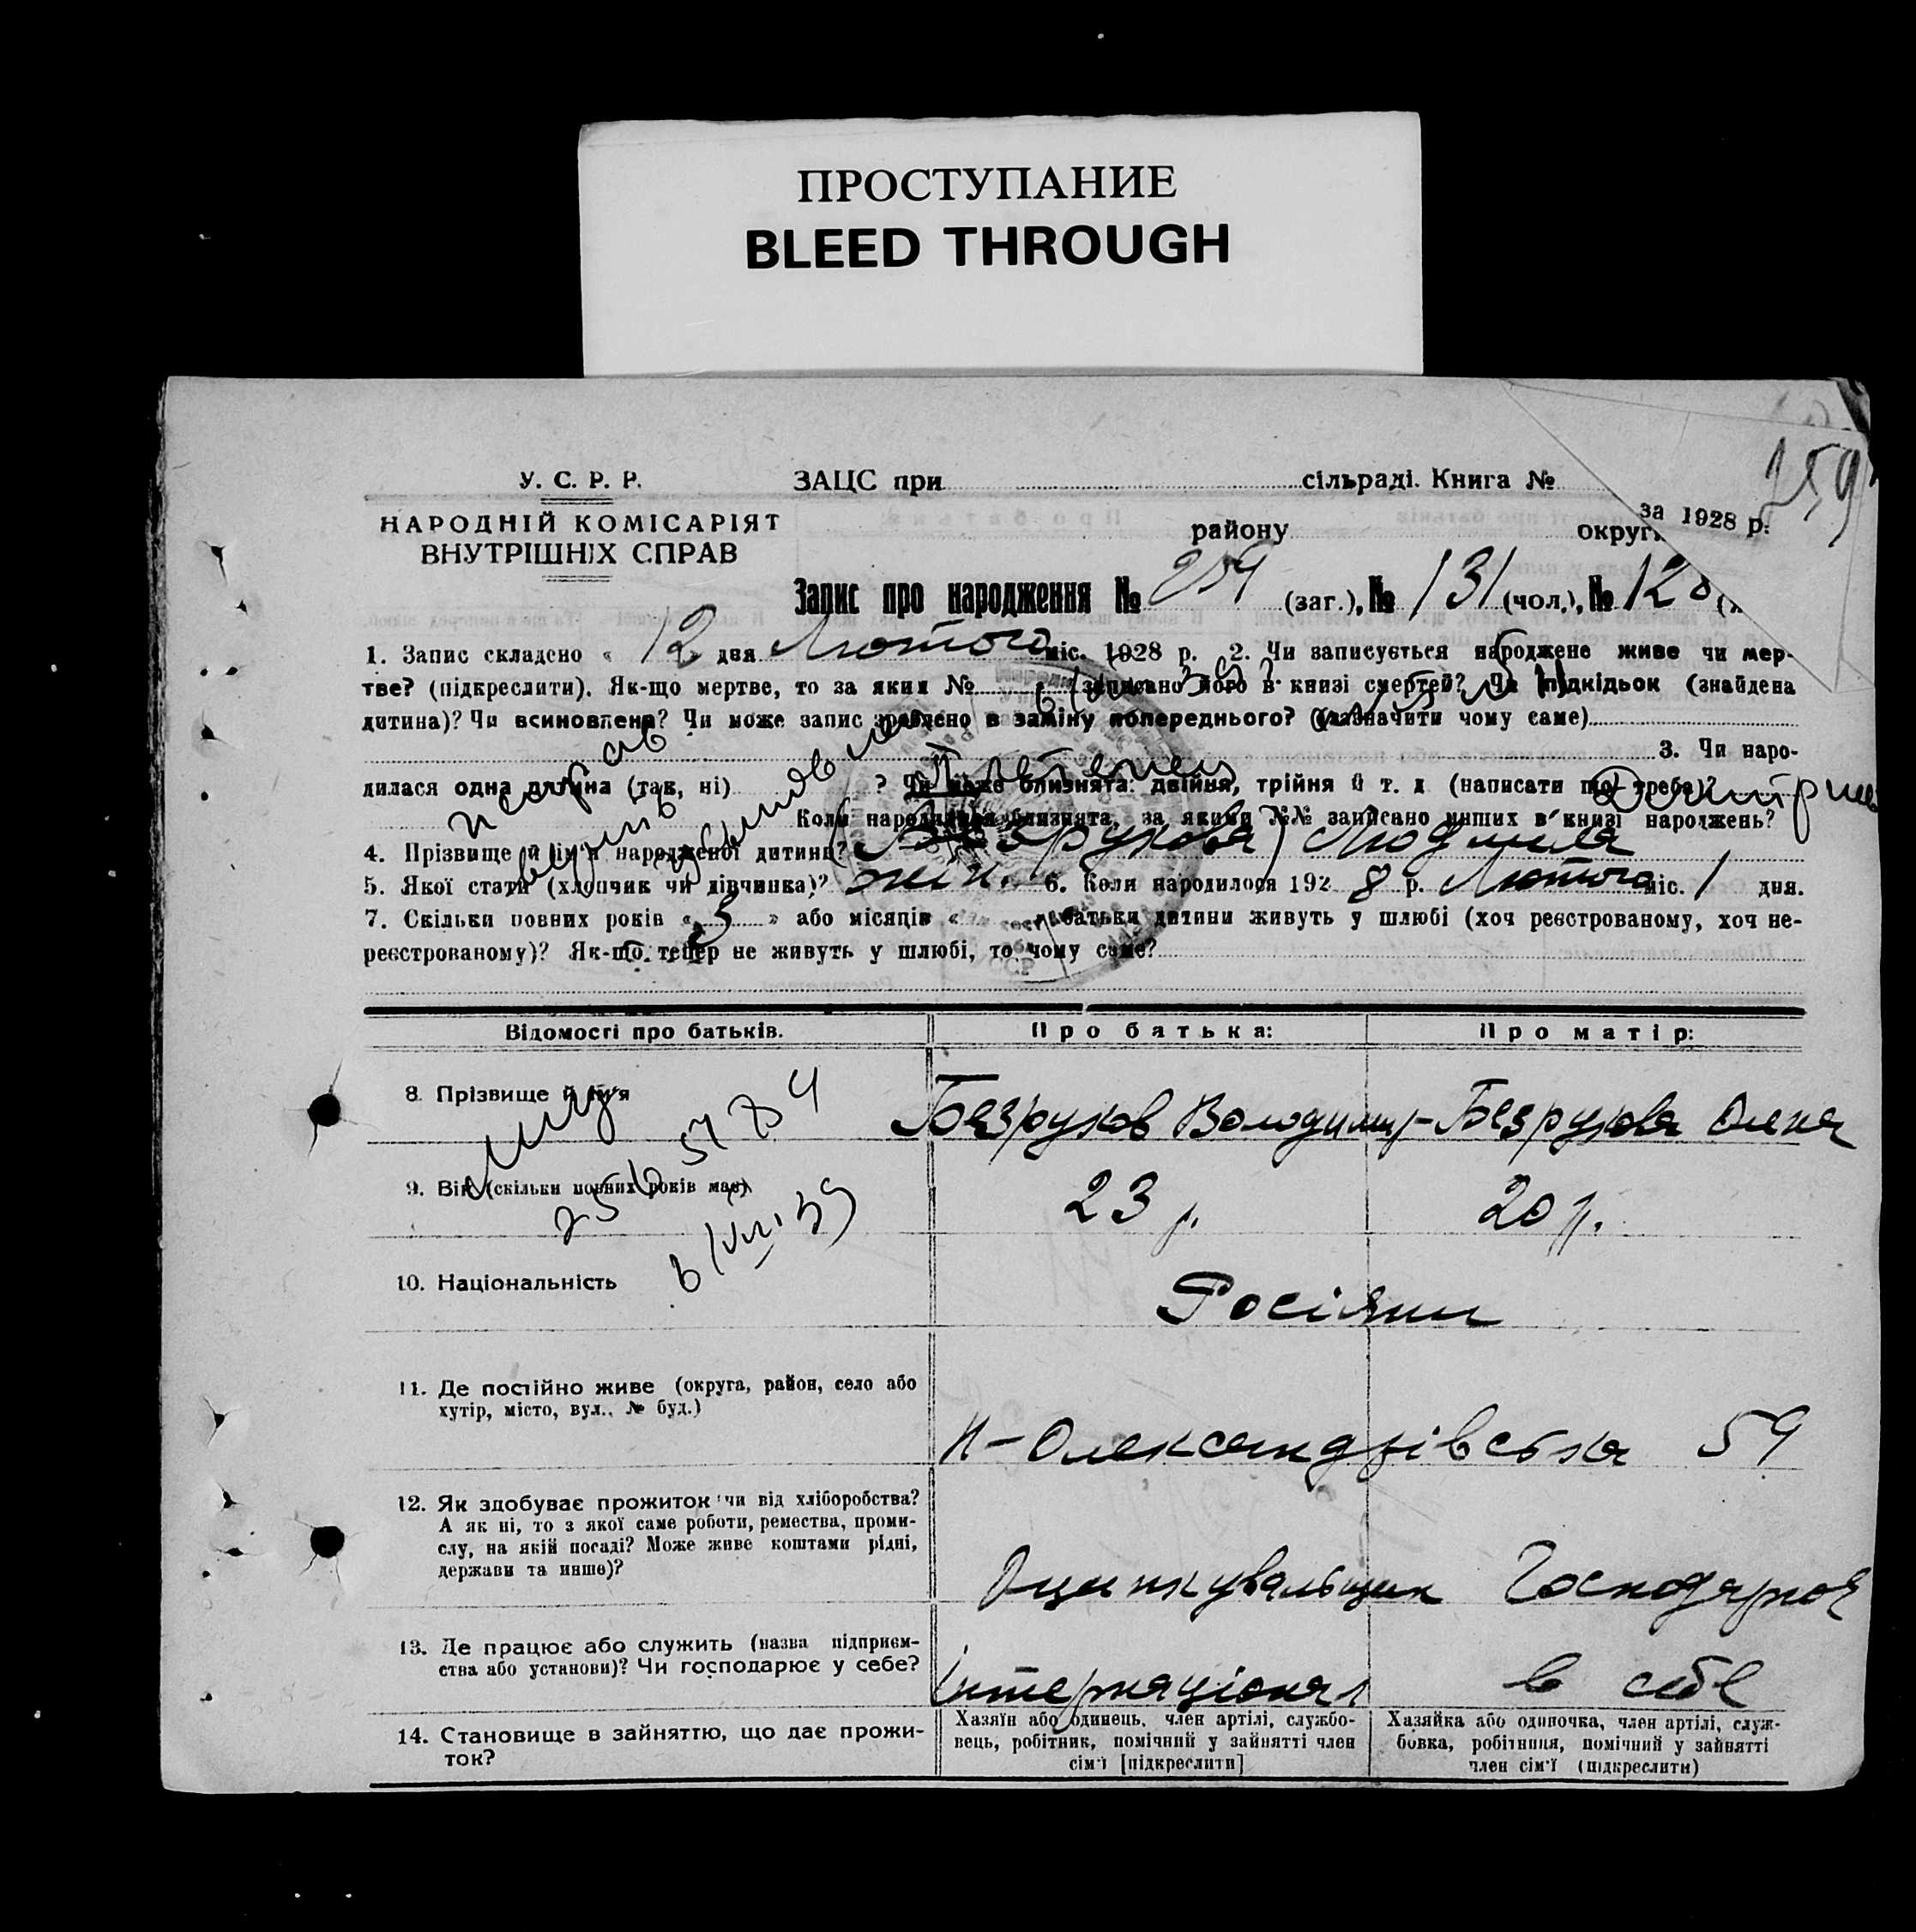 ПРОСТУПАНИЕ
BLEED THROUGH
259
У. С. Р. Р.
НАРОДНІЙ КОМІСАРІЯТ
ВНУТРІШНІХ СПРАВ
ЗАЦС при сільраді. Книга №
за 1928 р.
району округи
Запис про народження № 259 (заг.), № 131 (чол.), № 128
1. Запис складено « 12 дня Лютого міс. 1928 р. 2. Чи записується народжене живе чи мер-
тве? (підкреслити). Як-що мертве, то за яким № записано його в книзі смертей? Чи підкідьок (знайдена
дитина)? Чи всиновлена? Чи може запис зроблено в заміну попереднього? (зазначити чому саме)
3. Чи наро-
дилася одна дитина (так, ні) ? Чи може близнята: двійня, трійня й т. д (написати що треба)?
Коли народилися близнята, за якими №№ записано инших в книзі народжень?
4. Прізвище й ім'я народженої дитини? Безрукова Людмила
5. Якої стати (хлопчик чи дівчинка)? жін. 6. Коли народилося 1928 р. Лютого міс. 1 дня.
7. Скільки повних років « 3 » або місяців « батьки дитини живуть у шлюбі (хоч реєстрованому, хоч не-
реєстрованому)? Як-що тепер не живуть у шлюбі, то чому саме?
Відомості про батьків. Про батька: Про матір:
8. Прізвище й ім'я Безруков Володимир Безрукова Олена
9. Вік (скільки повних років має) 23 р. 20 р.
10. Національність Росіяни
11. Де постійно живе (округа, район, село або
хутір, місто, вул., № буд.) Н-Олександрівська 59
12. Як здобуває прожиток чи від хліборобства?
А як ні, то з якої саме роботи, ремества, проми-
слу, на якій посаді? Може живе коштами рідні,
держави та инше)? Оцинкувальщик Господарює
13. Де працює або служить (назва підприєм-
ства або установи)? Чи господарює у себе? Інтернаціонал в себе
14. Становище в зайняттю, що дає прожи-
ток?
Хазяїн або одинець, член артілі, службо-
вець, робітник, помічний у зайнятті член
сім'ї [підкреслити]
Хазяйка або одиночка, член артілі, служ-
бовка, робітниця, помічний у зайнятті
член сім'ї (підкреслити)